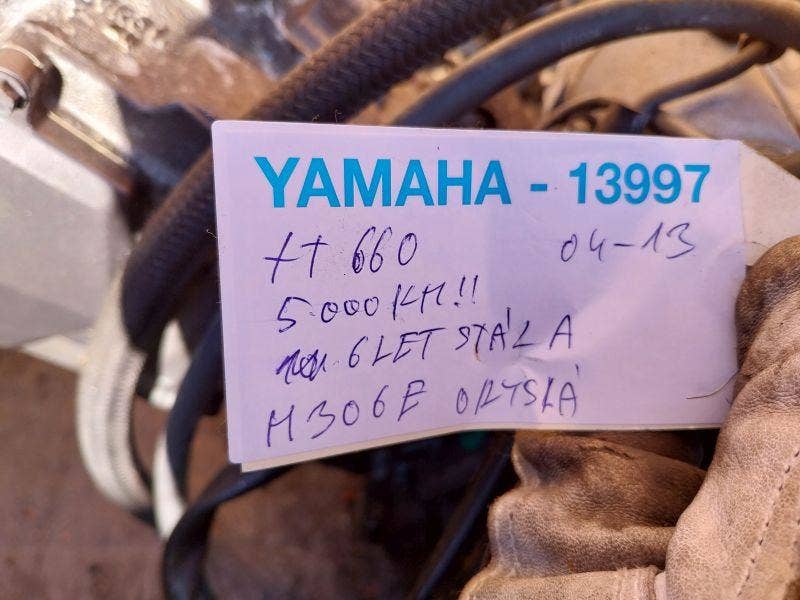 YAMAHA - 13997
XT 660 04-13
5.000KM!!
6LET STÁLA
M306E